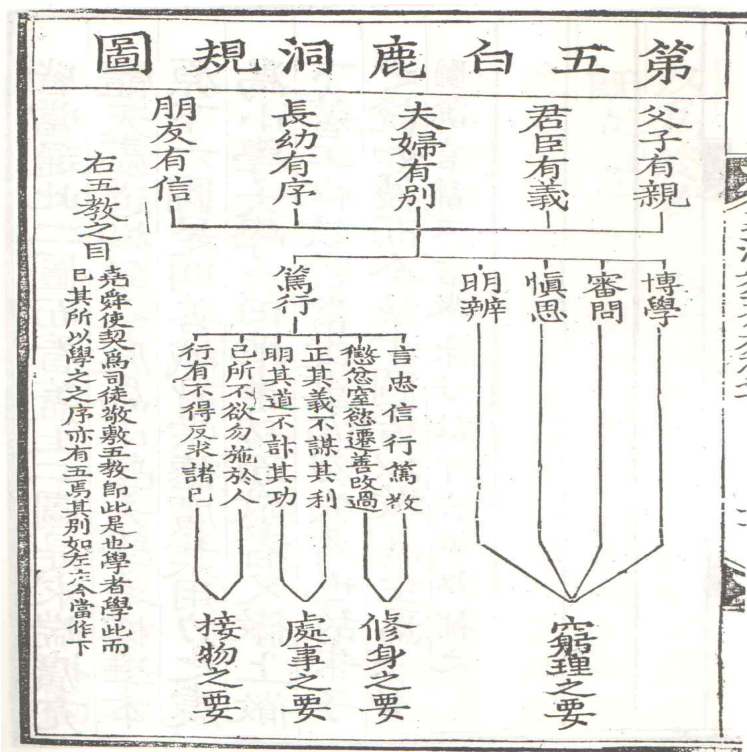 第五白鹿洞規圖
父子有親
君臣有義
夫婦有別
長幼有序
朋友有信
右五教之目
堯舜使契爲司徒敬敷五教即此是也學者學此而
已其所以學之之序亦有五焉其別如左左今當作下
博學
審問
愼思
明辨
篤行
言忠信行篤敬
懲忿窒慾遷善改過
正其義不謀其利
明其道不計其功
己所不欲勿施於人
行有不得反求諸己
窮理之要
修身之要
處事之要
接物之要